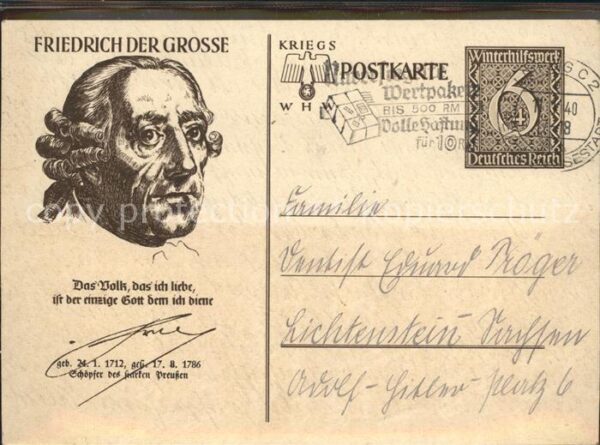 FRIEDRICH DER GROSSE
Das Volk, das ich liebe,
ist der einzige Gott dem ich diene
geb. 24. 1. 1712, gest. 17. 8. 1786
Schöpfer des starken Preußen
KRIEGS
WHW
POSTKARTE
Wertpaket
BIS 500 RM
Volle Haftung
für 10 R
Winterhilfswerk
6
4
Deutsches Reich
G C 2
40
8
MESSESTADT
Familie
Dentist Eduard Tröger
Lichtenstein Sachsen
Adolf-Hitler-Platz 6
copy protection